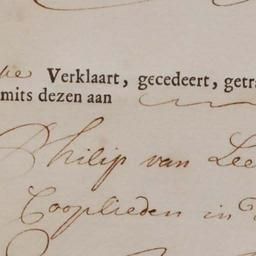 Verklaart, gecedeert, getra
mits dezen aan
Philip van Lee
Cooplieden in